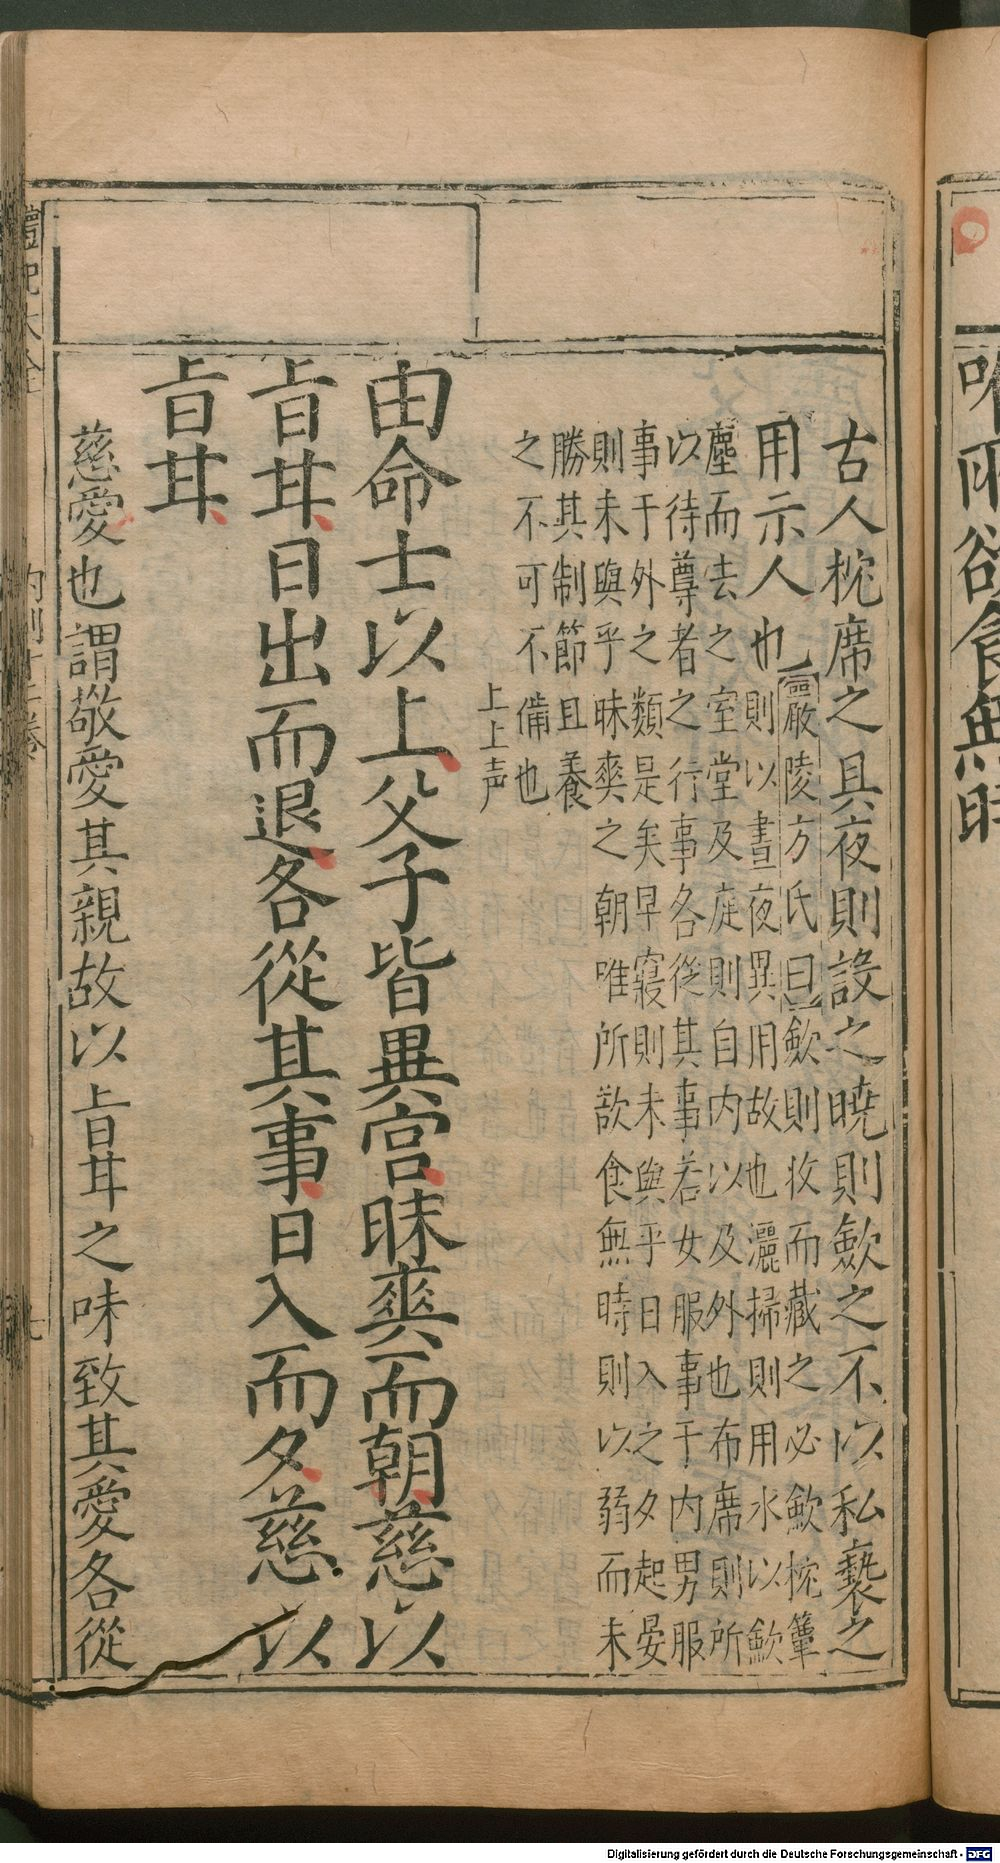 唯所欲食無時
古人枕席之具夜則設之曉則歛之不以私褻之
用示人也
嚴陵方氏曰歛則收而藏之必歛枕簟
則以晝夜異用故也灑掃則用水以歛
塵而去之室堂及庭則自内以及外也布席則所
以待尊者之行事各從其事若女服事于内男服
事于外之類是矣早寢則未與乎日入之夕起晏
則未與乎昧爽之朝唯所欲食無時則以弱而未
勝其制節且養
之不可不備也
上上声
由命士以上父子皆異宮昧爽而朝慈以
旨甘日出而退各從其事日入而夕慈以
旨甘
慈愛也謂敬愛其親故以旨甘之味致其愛各從
禮記大全 内則十 卷 七
Digitalisierung gefördert durch die Deutsche Forschungsgemeinschaft - DFG